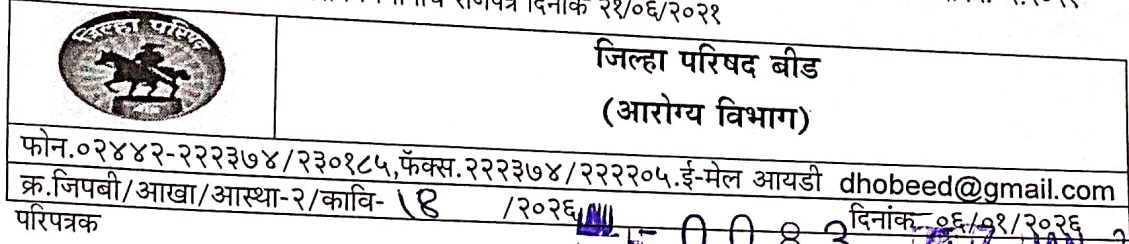 राजपत्र दिनांक २१/०६/२०२१
जिल्हा परिषद
बीड
जिल्हा परिषद बीड
(आरोग्य विभाग)
फोन.०२४४२-२२२३७४/२३०१८५,फॅक्स.२२२३७४/२२२२०५.ई-मेल आयडी dhobeed@gmail.com
क्र.जिपबी/आखा/आस्था-२/कावि- /२०२६ दिनांक ०६/०१/२०२६
परिपत्रक